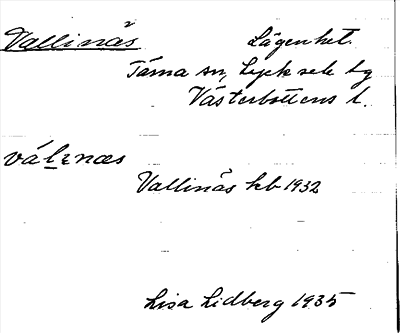 Vallinäs Lägenhet.
Tärna sn, Lycksele lg
Västerbottens l.
válɩnæs
Vallinäs kb 1932
Lisa Lidberg 1935